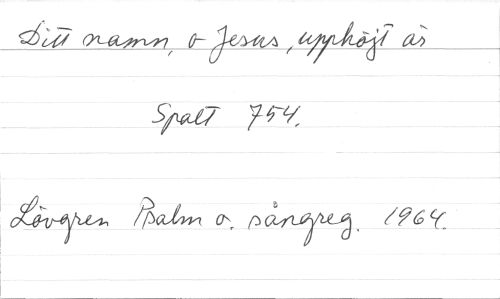 Ditt namn, o Jesus, upphöjt är
Spalt 754.
Lövgren Psalm o. sångreg. 1964.